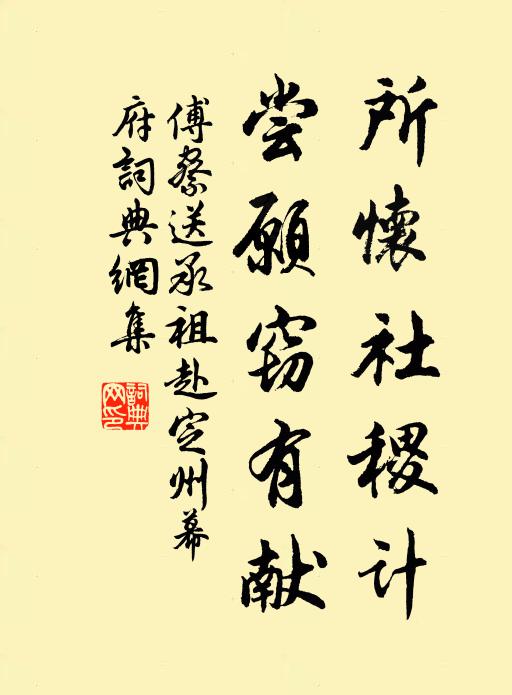 所懷社稷計
尝願窃有献
傅察送承祖赴定州幕
府詞典網集
詞典网印